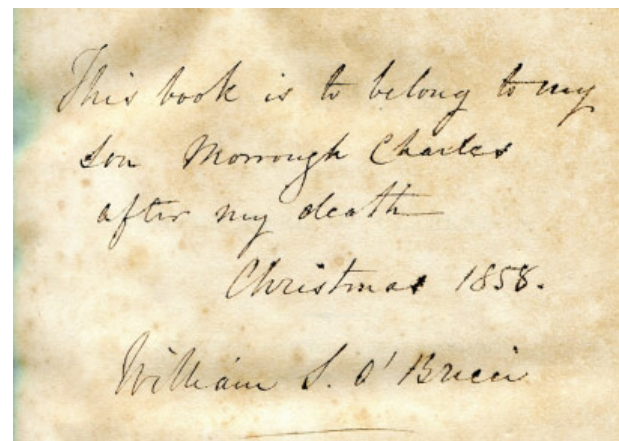 This book is to belong to my
son Morrough Charles
after my death
Christmas 1858.
William S. O'Brien